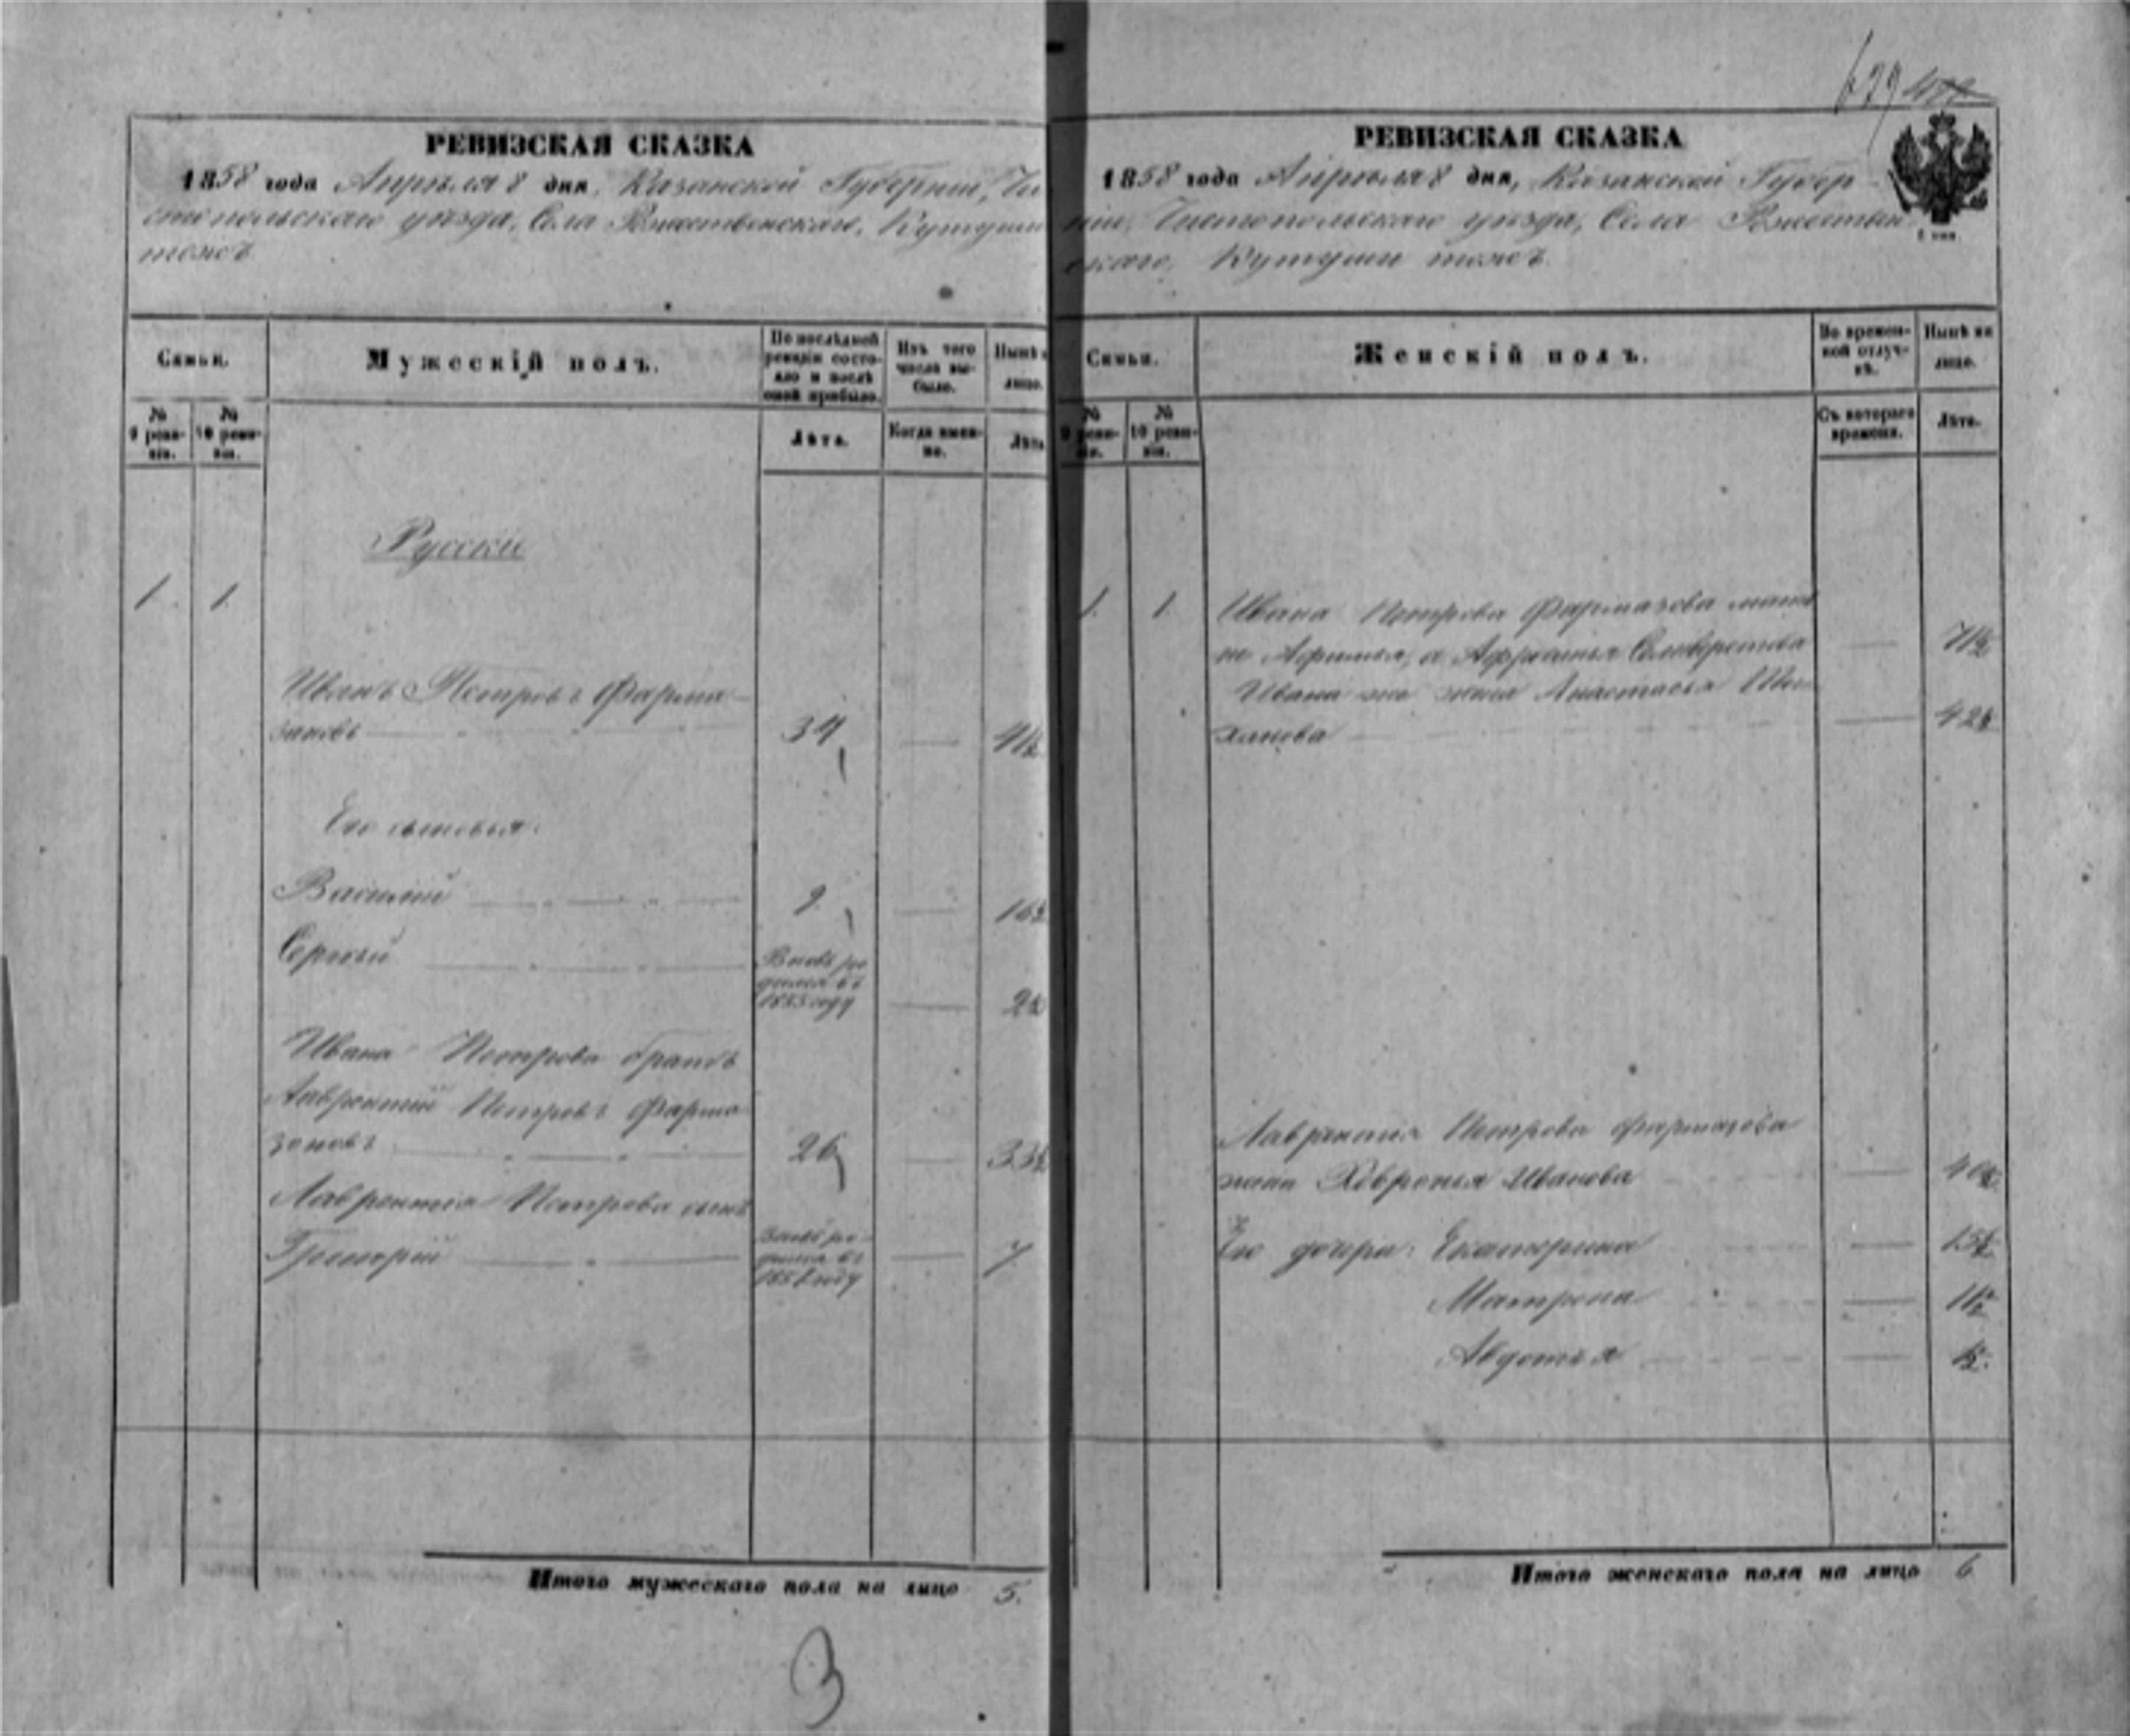 679
РЕВИЗСКАЯ СКАЗКА
1858 года Апрѣля 8 дня, Казанской Губерніи, Чи
стопольскаго уѣзда, Села Ржественскаго, Кутуши
тожъ
Семьи.
Мужескій полъ.
По послѣдней
ревизіи состо-
яло и послѣ
оной прибыло.
Изъ того
числа вы-
было.
Нынѣ
лицо.
№
9 реви-
зіи.
№
10 реви-
зіи.
Лѣта.
Когда имен-
но.
Лѣта
Русскіе
1. 1.
Иванъ Петровъ Фарма-
зоновъ 34 — 41½
Его сыновья:
Василій 9 — 16½
Сергѣй
Вновь ро
дился въ
1855 году — 2½
Ивана Петрова братъ
Лаврентій Петровъ Фарма
зоновъ 26 — 33½
Лаврентія Петрова сынъ
Григорій
Вновь ро-
дился въ
году — 7
Итого мужескаго пола на лицо 5.
3
РЕВИЗСКАЯ СКАЗКА
1858 года Апрѣля 8 дня, Казанской Губер-
ніи, Чистопольскаго уѣзда, Села Ржествен
скаго, Кутуши тожъ.
Семьи.
Женскій полъ.
Во времен-
ной отлуч-
кѣ.
Нынѣ на
лицо.
№
9 реви-
зіи.
№
10 реви-
зіи.
Съ котораго
времени.
Лѣта.
1. 1. Ивана Петрова Фармазова мать
не Афимья, а Селиверстова — 71½
Ивана же жена Анастасья
— 42½
Лаврентія Петрова Фармазова
жена Хавронья Иванова — 40½
Ею дочери: Екатерина — 15½
Матрена — 11½
Авдотья — ½
Итого женскаго пола на лицо 6